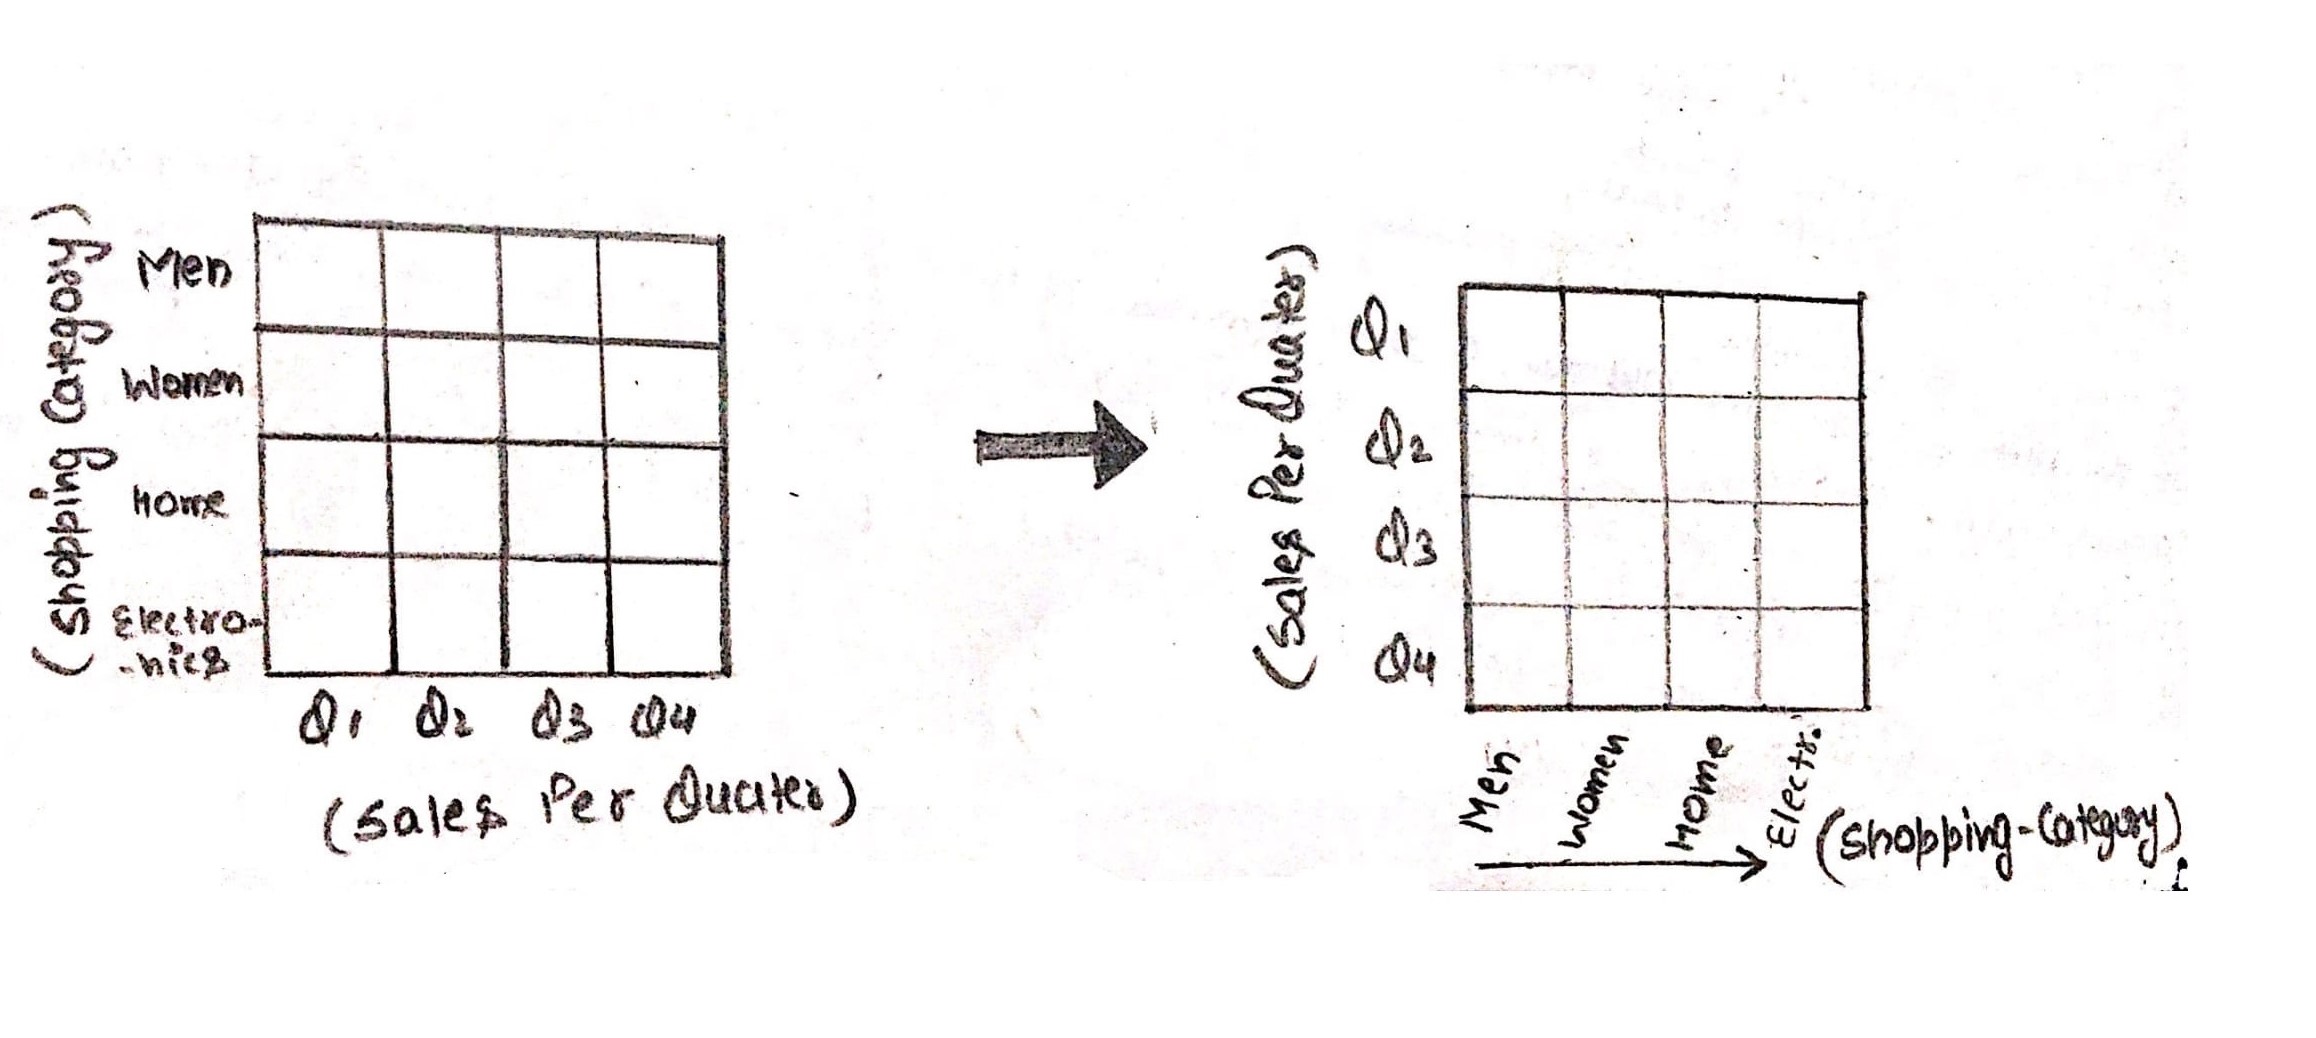 (Shopping Category)
Men
Women
Home
Electro-
-nics
Q1 Q2 Q3 Q4
(Sales Per Quater)
(Sales Per Quater)
Q1
Q2
Q3
Q4
Men Women Home Electr.
(Shopping-Category).